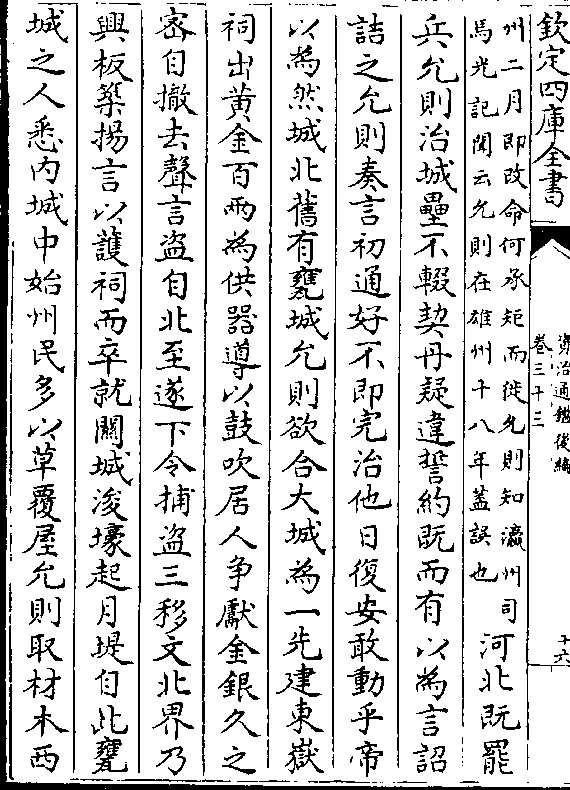 欽定四庫全書
資治通鑑後編
卷三十三
十六
州二月即改命何承矩而徙允則知瀛州司
馬光記聞云允則在雄州十八年蓋誤也
河北既罷
兵允則治城壘不輟契丹疑違誓約既而有以為言詔
詰之允則奏言初通好不即完治他日復安敢動乎帝
以為然城北舊有甕城允則欲合大城為一先建東嶽
祠出黃金百兩為供器導以鼓吹居人争獻金銀久之
宻自撤去聲言盗自北至遂下令捕盗三移文北界乃
興板築揚言以護祠而卒就關城浚壕起月堤自此甕
城之人悉内城中始州民多以草覆屋允則取材木西